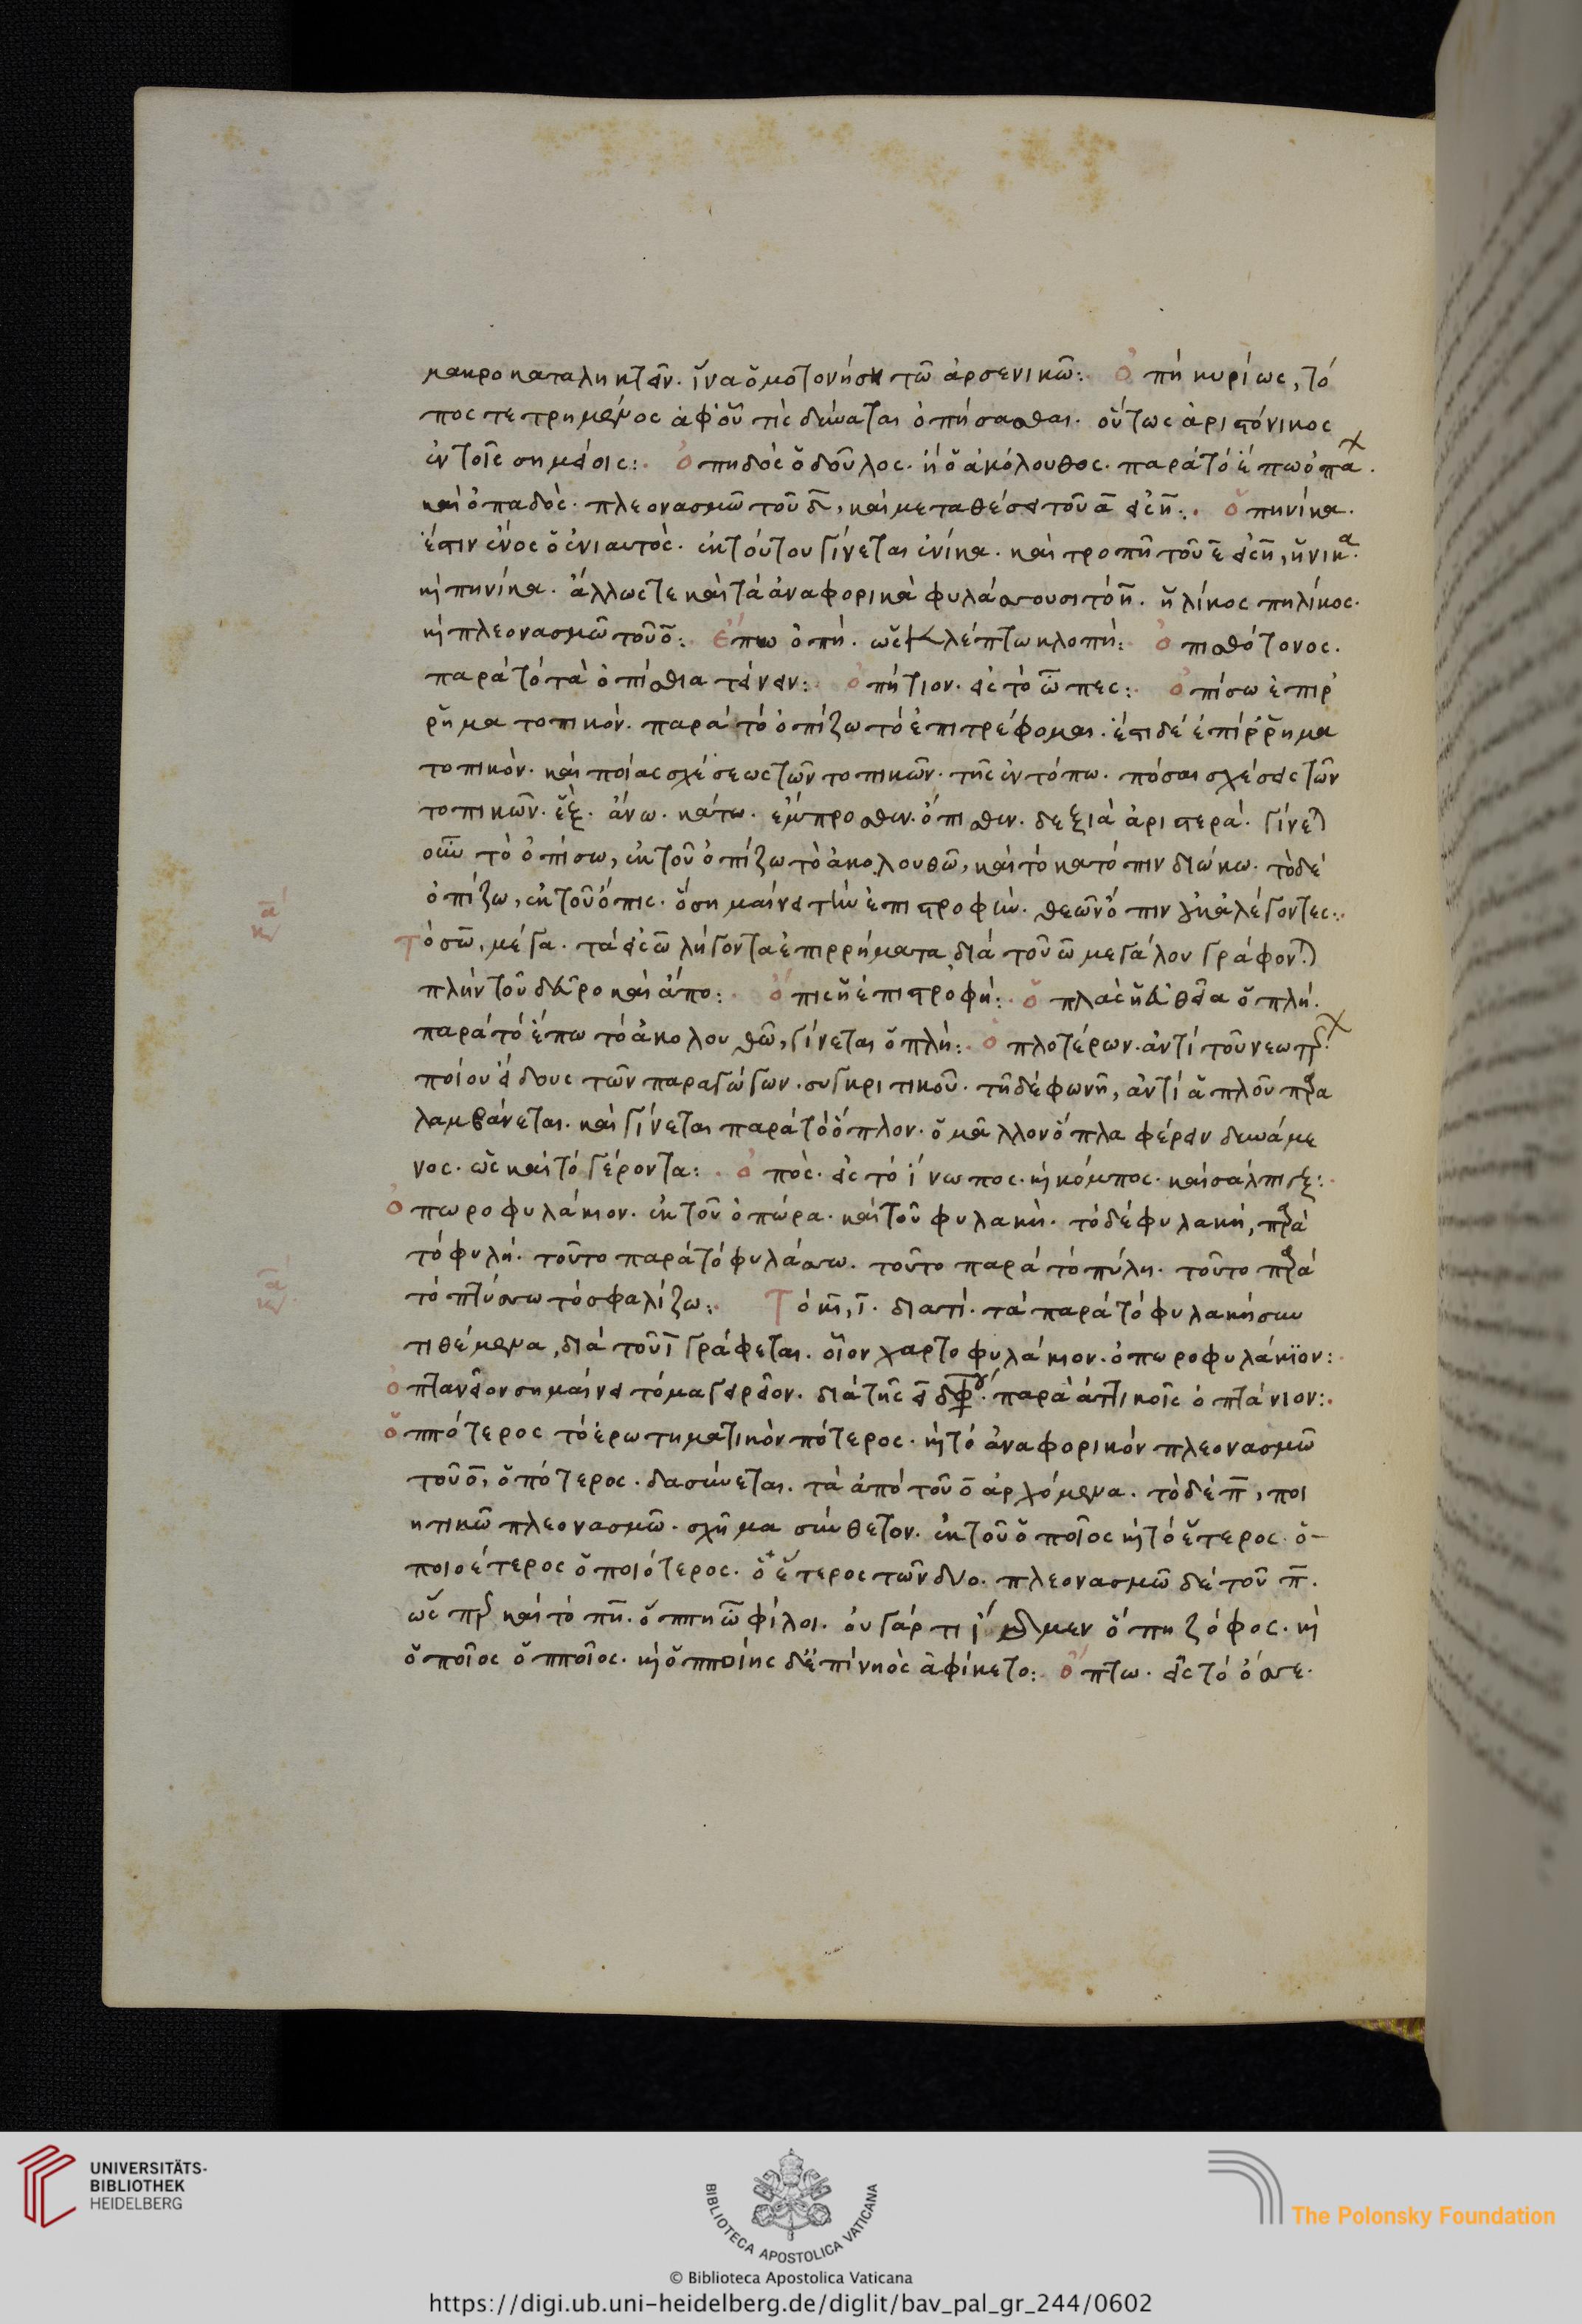 μακροκαταληκτεῖν. ἵνα ὁμοτονήση τῶ ἀρσενικῶ: ὀπὴ κυρίως, τό
πος τετρημένος ἀφ' οὗ τὶς δύναται ὀπήσασθαι. οὕτως ἀριστόνικος
ἐν τοῖς σημείοις: ὀπηδὸς ὁ δοῦλος. ἢ ὁ ἀκόλουθος. παρὰ τὸ ἕπω ὀπα.
καὶ ὀπαδὸς. πλεονασμῶ τοῦ δ, καὶ μεταθέσει τοῦ α εἰς η: ὁπηνίκα.
ἔστιν ἔνος ὁ ἐνιαυτὸς. ἐκ τούτου γίνεται ἐνίκα. καὶ τροπῆ τοῦ ε εἰς η, ἡνίκα.
καὶ πηνίκα. ἄλλως τε καὶ τὰ ἀναφορικὰ φυλάσσουσι τὸ η. ἡλίκος πηλίκος.
καὶ πλεονασμῶ τοῦ ο: ἕπω ὀπή. ὡς κλέπτω κλοπή: ὀπισθότονος.
παρὰ τὸ τὰ ὀπίσθια τείνειν: ὀπήτιον. εἰς τὸ ὦπες: ὀπίσω ἐπιρ
ρῆμα τοπικόν. παρὰ τὸ ὀπίζω τὸ ἐπιτρέφομαι. ἔστι δὲ ἐπίρρημα
τοπικόν. καὶ ποίας σχέσεως τῶν τοπικῶν. τῆς ἐν τόπω. πόσαι σχέσεις τῶν
τοπικῶν. ἕξ. ἄνω. κάτω. ἔμπροσθεν. ὄπισθεν. δεξιὰ ἀριστερά. γίνεται
οὖν τὸ ὀπίσω, ἐκ τοῦ ὀπίζω τὸ ἀκολουθῶ, καὶ τὸ κατόπιν διώκω. τὸ δὲ
ὀπίζω, ἐκ τοῦ ὄπις. ὃ σημαίνει τὴν ἐπιστροφὴν. θεῶν ὄπιν οὐκ ἀλέγοντες:
Τὸ σω, μέγα. τὰ εἰς ω λήγοντα ἐπιρρήματα διὰ τοῦ ω μεγάλου γράφονται
πλὴν τοῦ δεῦρο καὶ ἄπο: ὄπις ἡ ἐπιστροφή: ὁπλαὶ ἡ εὐθεῖα ὁπλή.
παρὰ τὸ ἕπω τὸ ἀκολουθῶ, γίνεται ὁπλή: ὁπλοτέρων. ἀντὶ τοῦ νεωτέρ.
ποίου εἴδους τῶν παραγώγων. συγκριτικοῦ. τῆ δὲ φωνῆ, ἀντὶ ἁπλοῦ παρα
λαμβάνεται. καὶ γίνεται παρὰ τὸ ὅπλον. ὁ μᾶλλον ὅπλα φέρειν δυνάμε
νος. ὡς καὶ τὸ γέροντα: ὀπὸς. εἰς τὸ ἴνωπος. καὶ κόμπος. καὶ σάλπιγξ:
ὀπωροφυλάκιον. ἐκ τοῦ ὀπώρα. καὶ τοῦ φυλακὴ. τὸ δὲ φυλακή, παρὰ
τὸ φυλή. τοῦτο παρὰ τὸ φυλάσσω. τοῦτο παρὰ τὸ πύλη. τοῦτο παρὰ
τὸ πτύσσω τὸ σφαλίζω: Τὸ κι, ι. διατί. τὰ παρὰ τὸ φυλακὴ συν
τιθέμενα, διὰ τοῦ ι γράφεται. οἷον χαρτοφυλάκιον. ὀπωροφυλάκιον:
ὀπτανεῖον σημαίνει τὸ μαγειρεῖον. διὰ τῆς ει διφθόγγου. παρὰ ἀττικοῖς ὀπτάνιον:
ὁππότερος τὸ ἐρωτηματικὸν πότερος. καὶ τὸ ἀναφορικὸν πλεονασμῶ
τοῦ ο, ὁπότερος. δασύνεται. τὰ ἀπὸ τοῦ ο ἀρχόμενα. τὸ δὲ π, ποι
ητικῶ πλεονασμῶ. σχῆμα σύνθετον. ἐκ τοῦ ὁποῖος καὶ τὸ ἕτερος. ὁ-
ποιοέτερος ὁποιότερος. ὁ ἕτερος τῶν δύο. πλεονασμῶ δὲ τοῦ π.
ὡς περ καὶ τὸ πη. ὅππη ὦ φίλοι. οὐ γάρ τι ἴδμεν ὅπη ζόφος. καὶ
ὁποῖος ὁπποῖος. καὶ ὁπποίης δ' ἐπὶ νηὸς ἀφίκετο: ὄπτω. εἰς τὸ ὄσσε.
UNIVERSITÄTS-
BIBLIOTHEK
HEIDELBERG
BIBLIOTECA APOSTOLICA VATICANA
The Polonsky Foundation
© Biblioteca Apostolica Vaticana
https://digi.ub.uni-heidelberg.de/diglit/bav_pal_gr_244/0602